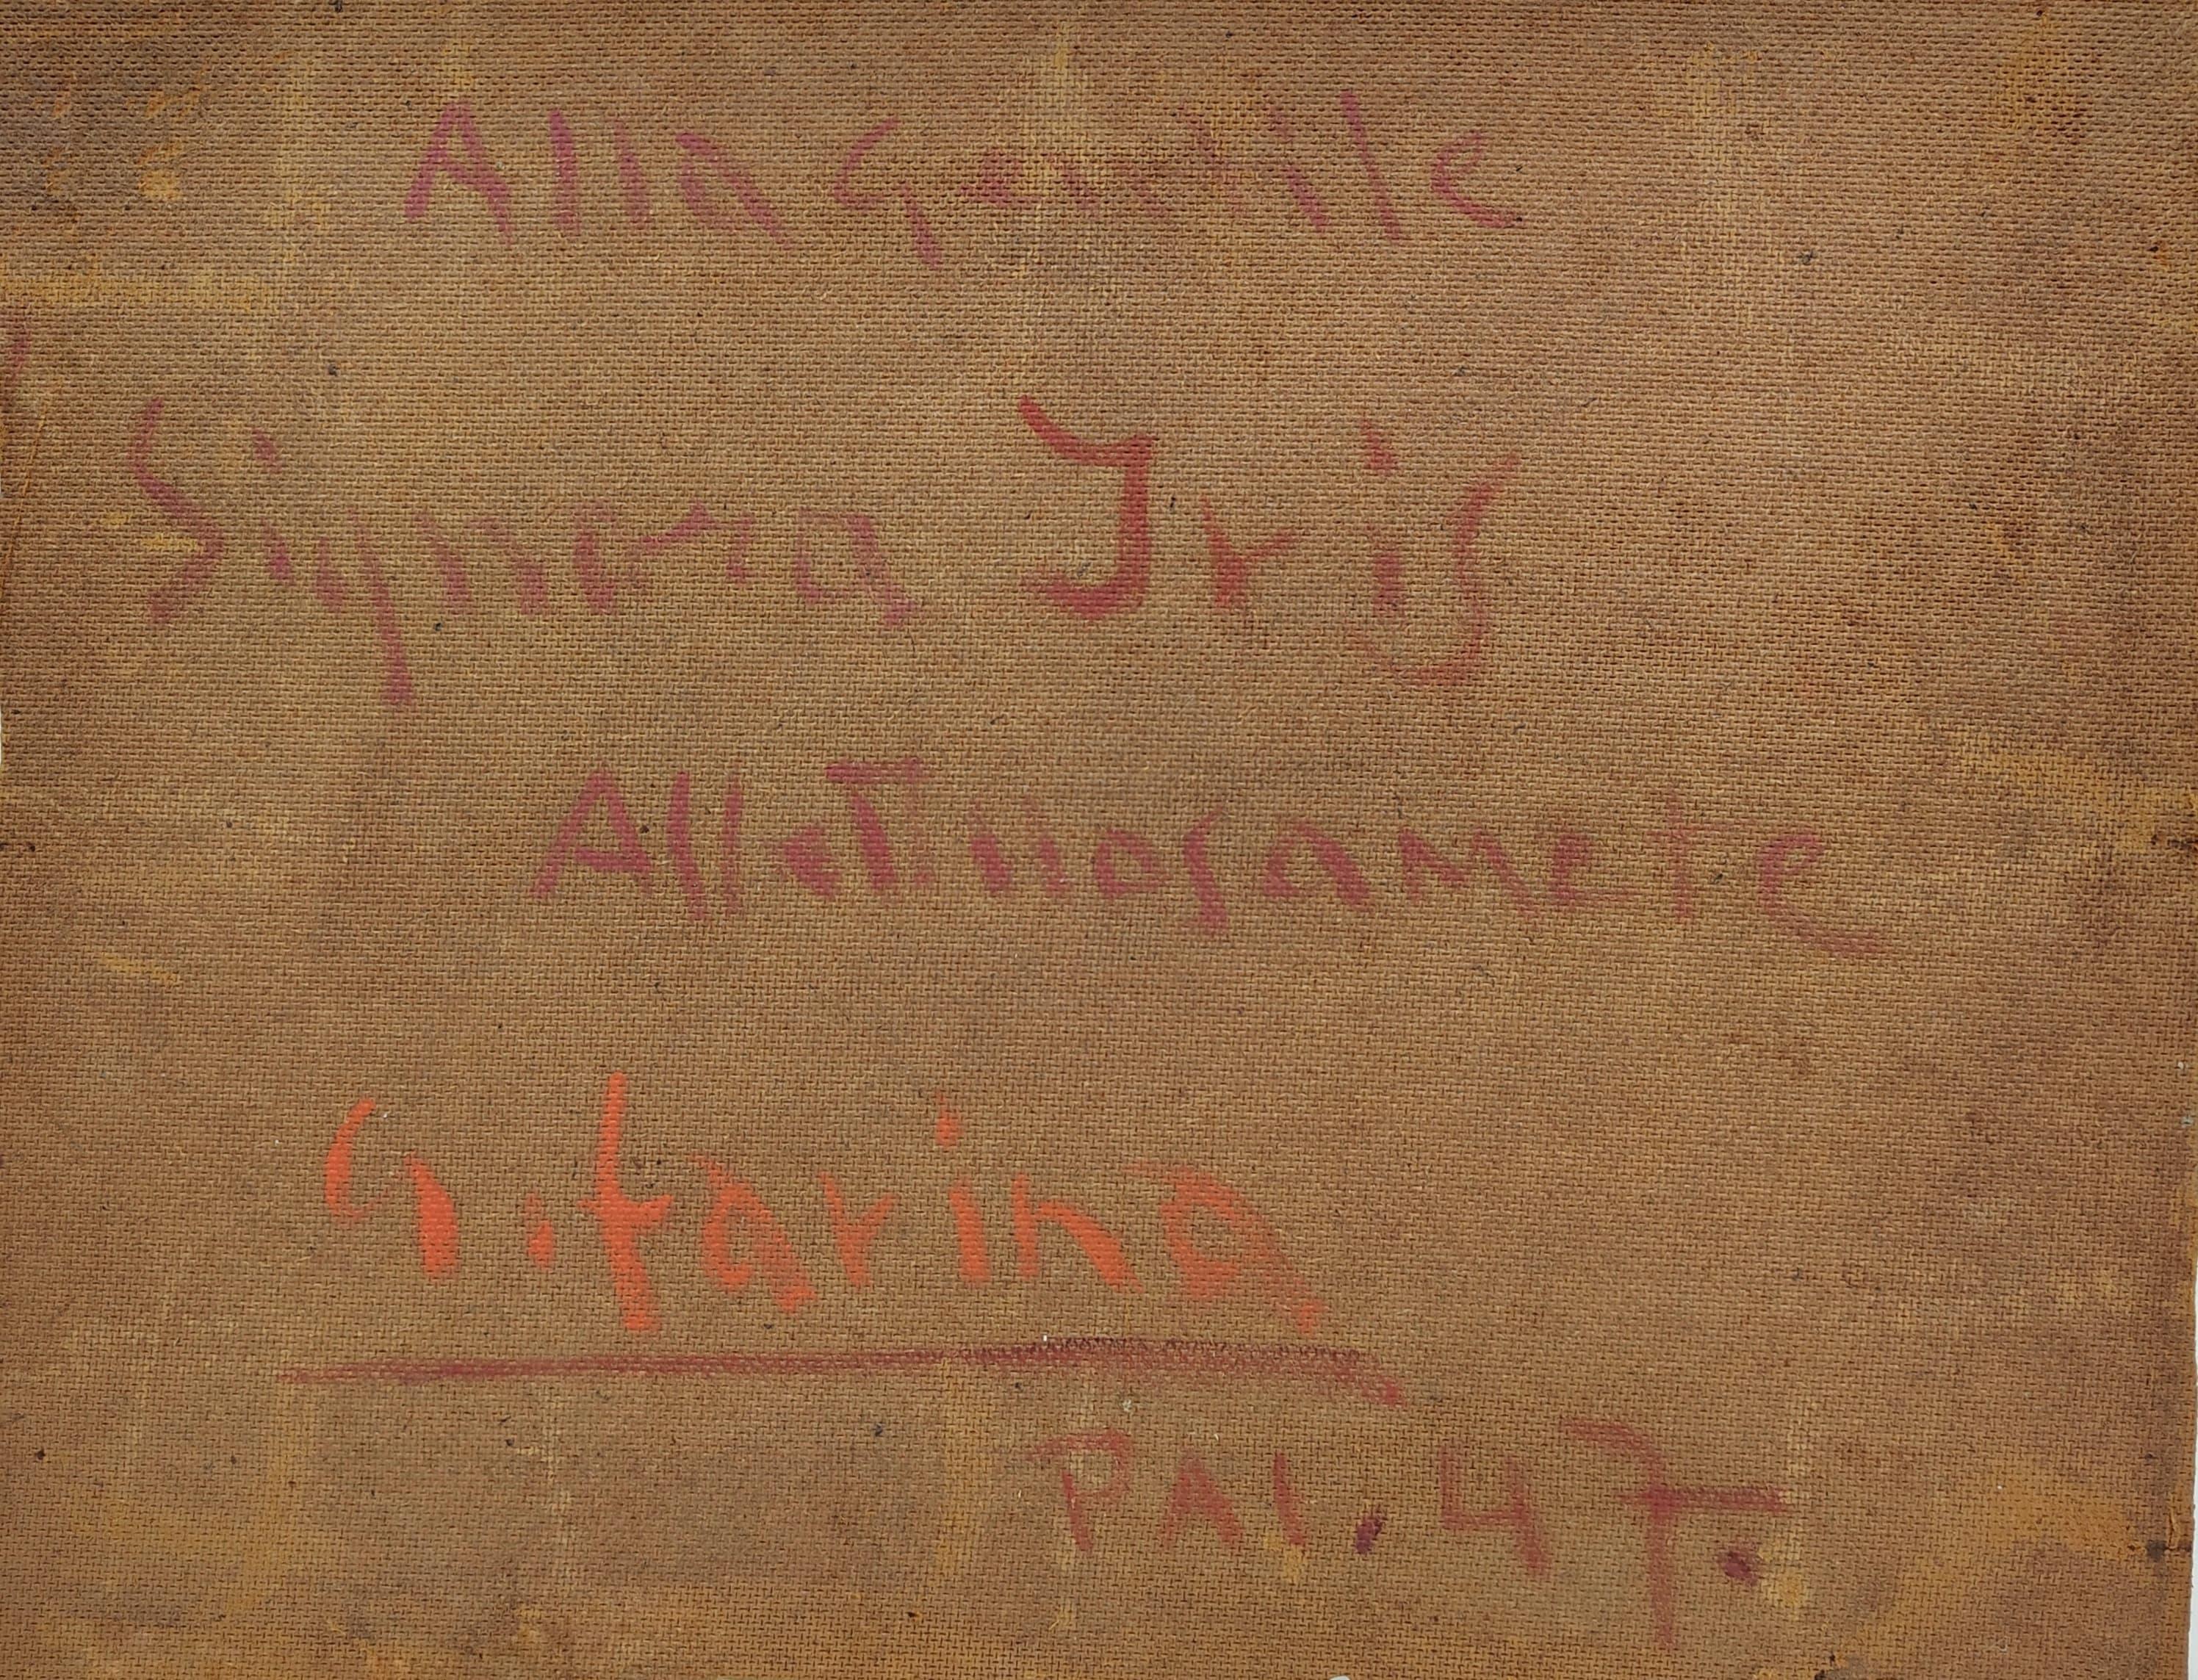 Alla gentile
Signora Iris
Affettuosamete
G. farina
PAI. 47.